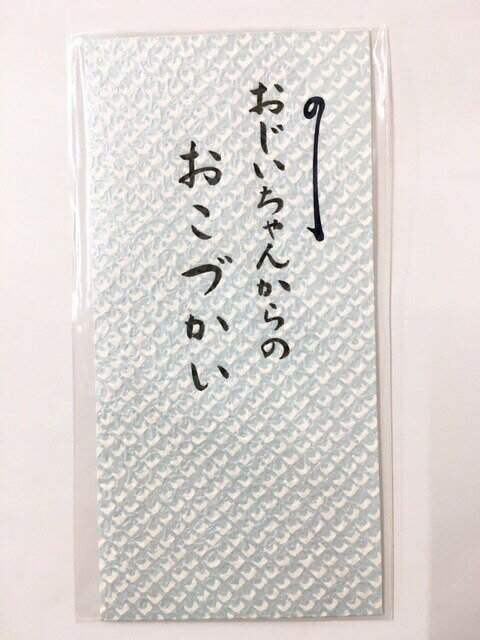 おじいちゃんからの
おこづかい